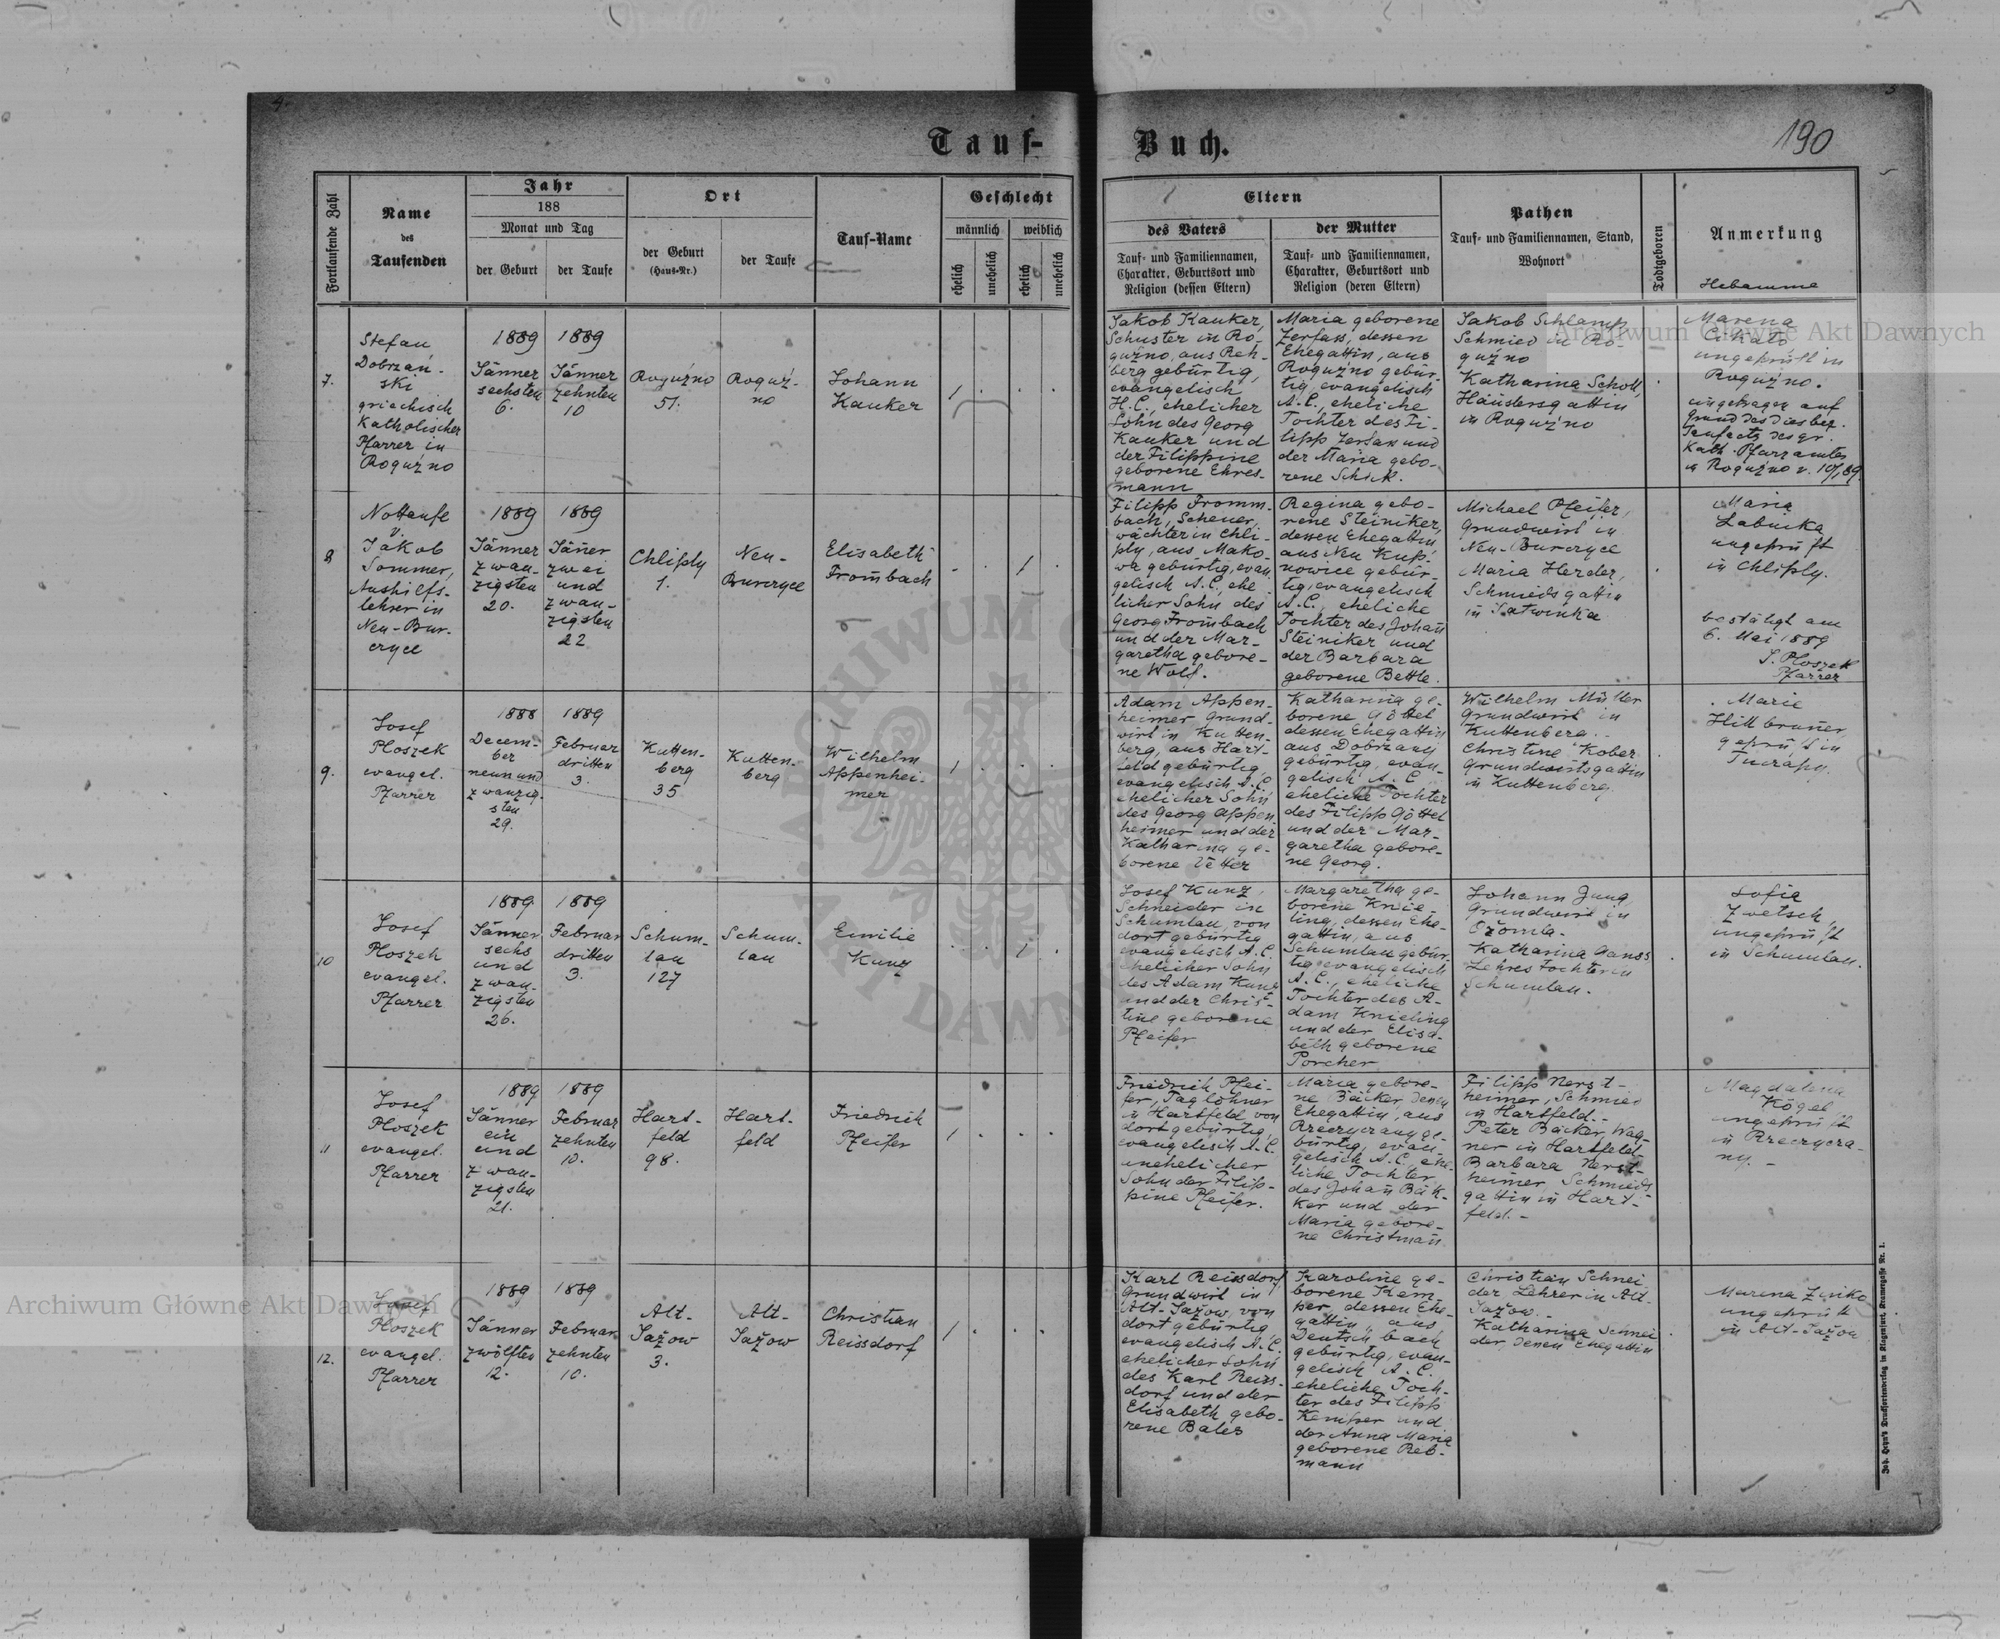 4.
5
190
Tauf-Buch.
Fortlaufende Zahl
Name
des
Taufenden
Jahr
188
Monat und Tag
der Geburt
der Taufe
Ort
der Geburt
(Haus-Nr.)
der Taufe
Tauf-Name
Geschlecht
männlich
weiblich
ehelich
unehelich
ehelich
unehelich
Eltern
des Vaters
Tauf- und Familiennamen,
Charakter, Geburtsort und
Religion (dessen Eltern)
der Mutter
Tauf- und Familiennamen,
Charakter, Geburtsort und
Religion (deren Eltern)
Pathen
Tauf- und Familiennamen, Stand,
Wohnort
Todtgeboren
Anmerkung
Hebamme
7.
Stefan
Dobrzań-
ski
griechisch
Katholischer
Pfarrer in
Roguźno
1889
Jänner
sechsten
6.
1889
Jänner
zehnten
10
Roguźno
51.
Roguź-
no
Johann
Kauker
1
Jakob Kauker,
Schuster in Ro-
guźno, aus Reh-
berg gebürtig,
evangelisch
H.C., ehelicher
Sohn des Georg
Kauker und
der Filippine
geborene Ehres-
mann
Maria geborene
Zerfass, dessen
Ehegattin, aus
Roguźno gebür-
tig, evangelisch
A.C., eheliche
Tochter des Fi-
lipp Zerfass und
der Maria gebo-
rene Schick.
Jakob Schlamp
Schmied in Ro-
guźno
Katharina Scholl,
Häuslersgattin
in Roguźno
Marena
Cikato
ungeprüft in
Roguźno.
eingetragen auf
Grund des diesbez.
Taufacts des gr.
Kath. Pfarramtes
in Roguźno v. 10/1 89.
8
Nottaufe
v.
Jakob
Sommer,
Aushilfs-
lehrer in
Neu-Bur-
czyce
1889
Jänner
zwan-
zigsten
20.
1889
Jäner
zwei
und
zwan-
zigsten
22
Chliply
1.
Neu-
Burczyce
Elisabeth
Frombach
1
Filipp Fromm-
bach, Scheuer-
wächter in Chli-
ply, aus Mako-
wa gebürtig, evan-
gelisch A.C., ehe-
licher Sohn des
Georg Frombach
und der Mar-
garetha gebore-
ne Wolf.
Regina gebo-
rene Steiniker,
dessen Ehegattin
aus Neu Kup-
nowice gebür-
tig, evangelisch
A.C., eheliche
Tochter des Johan
Steiniker und
der Barbara
geborene Bettle.
Michael Pfeifer,
Grundwirt in
Neu-Burczyce
Maria Herder,
Schmieds gattin
in Katwinka
Maria
Labuika
ungeprüft
in Chliply.
bestätigt am
6. Mai 1889
J. Ploszek
Pfarrer
9.
Josef
Ploszek
evangel.
Pfarrer
1888
Decem-
ber
neunund
zwanzig-
sten
29.
1889
Februar
dritten
3.
Kutten-
berg
35
Kutten-
berg
Wilhelm
Appenhei-
mer
1
Adam Appen-
heimer Grund-
wirt in Kutten-
berg, aus Hart-
feld gebürtig,
evangelisch A.C.
ehelicher Sohn
des Georg Appen
heimer und der
Katharina ge-
borene Vetter
Katharina ge-
borene Göttel
dessen Ehegattin
aus Dobrzany
gebürtig, evan-
gelisch A.C.
eheliche Tochter
des Filipp Göttel
und der Mar-
garetha gebore-
ne Georg.
Wilhelm Müller
Grundwirt in
Kuttenberg.
Christine Kober
Grundwirtsgattin
in Kuttenberg.
Marie
Hillbruner
geprüft in
Tuczapy.
10
Josef
Ploszek
evangel.
Pfarrer
1889
Jänner
sechs
und
zwan-
zigsten
26.
1889
Februar
dritten
3.
Schum-
lau
127
Schum-
lau
Emilie
Kunz
1
Josef Kunz,
Schneider in
Schumlau, von
dort gebürtig
evangelisch A.C.
ehelicher Sohn
des Adam Kunz
und der Chris-
tine geborene
Pfeifer
Margaretha ge-
borene Knie
ling, dessen Ehe-
gattin, aus
Schumlau gebür-
tig evangelisch
A.C., eheliche
Tochter des A-
dam Knieling
und der Elisa-
beth geborene
Porcher
Johann Jung
Grundwirt in
Ożomla.
Katharina Ganss
Lehrers Tochter in
Schumlau.
Sofie
Zwetsch,
ungeprüft
in Schumlau.
11
Josef
Ploszek
evangel.
Pfarrer
1889
Jänner
ein
und
zwan-
zigsten
21.
1889
Februar
zehnten
10.
Hart-
feld
98.
Hart-
feld
Friedrich
Pfeifer
1
Friedrich Pfei-
fer, Taglöhner
in Hartfeld von
dort gebürtig,
evangelisch A.C.
unehelicher
Sohn der Filip-
pine Pfeifer.
Maria gebore-
ne Bäcker denen
Ehegattin, aus
Rzeczycany ge-
bürtig, evan-
gelisch A.C., ehe-
liche Tochter
des Johan Bäk-
ker und der
Maria gebore-
ne Christman
Filipp Nerst-
heimer, Schmied
in Hartfeld.-
Peter Bäcker Wag-
ner in Hartfeld-
Barbara Nerst-
heimer, Schmieds
gattin in Hart-
feld.-
Magdalena
Kögel
ungeprüft
in Rzeczyca-
ny.-
12.
Josef
Ploszek
evangel.
Pfarrer
1889
Jänner
zwölften
12.
1889
Februar
zehnten
10.
Alt-
Jażow
3.
Alt-
Jażow
Christian
Reissdorf
1
Karl Reissdorf
Grundwirt in
Alt-Jażow, von
dort gebürtig
evangelisch A.C.
ehelicher Sohn
des Karl Reiss-
dorf und der
Elisabeth gebo-
rene Bales
Karoline ge-
borene Kem-
per, dessen Ehe-
gattin, aus
Deutschbach
gebürtig, evan-
gelisch A.C.
eheliche Toch-
ter des Filipp
Kemper und
der Anna Maria
geborene Reb-
mann
Christian Schnei
der Lehrer in Alt-
Jażow.
Katharina Schnei
der, denen Ehegattin
Marena Zuiko
ungeprüft
in Alt-Jażow
Joh. Heyn's Drucksortenverlag in Klagenfurt, Kramergasse Nr. 1.
Archiwum Główne Akt Dawnych
Archiwum Główne Akt Dawnych